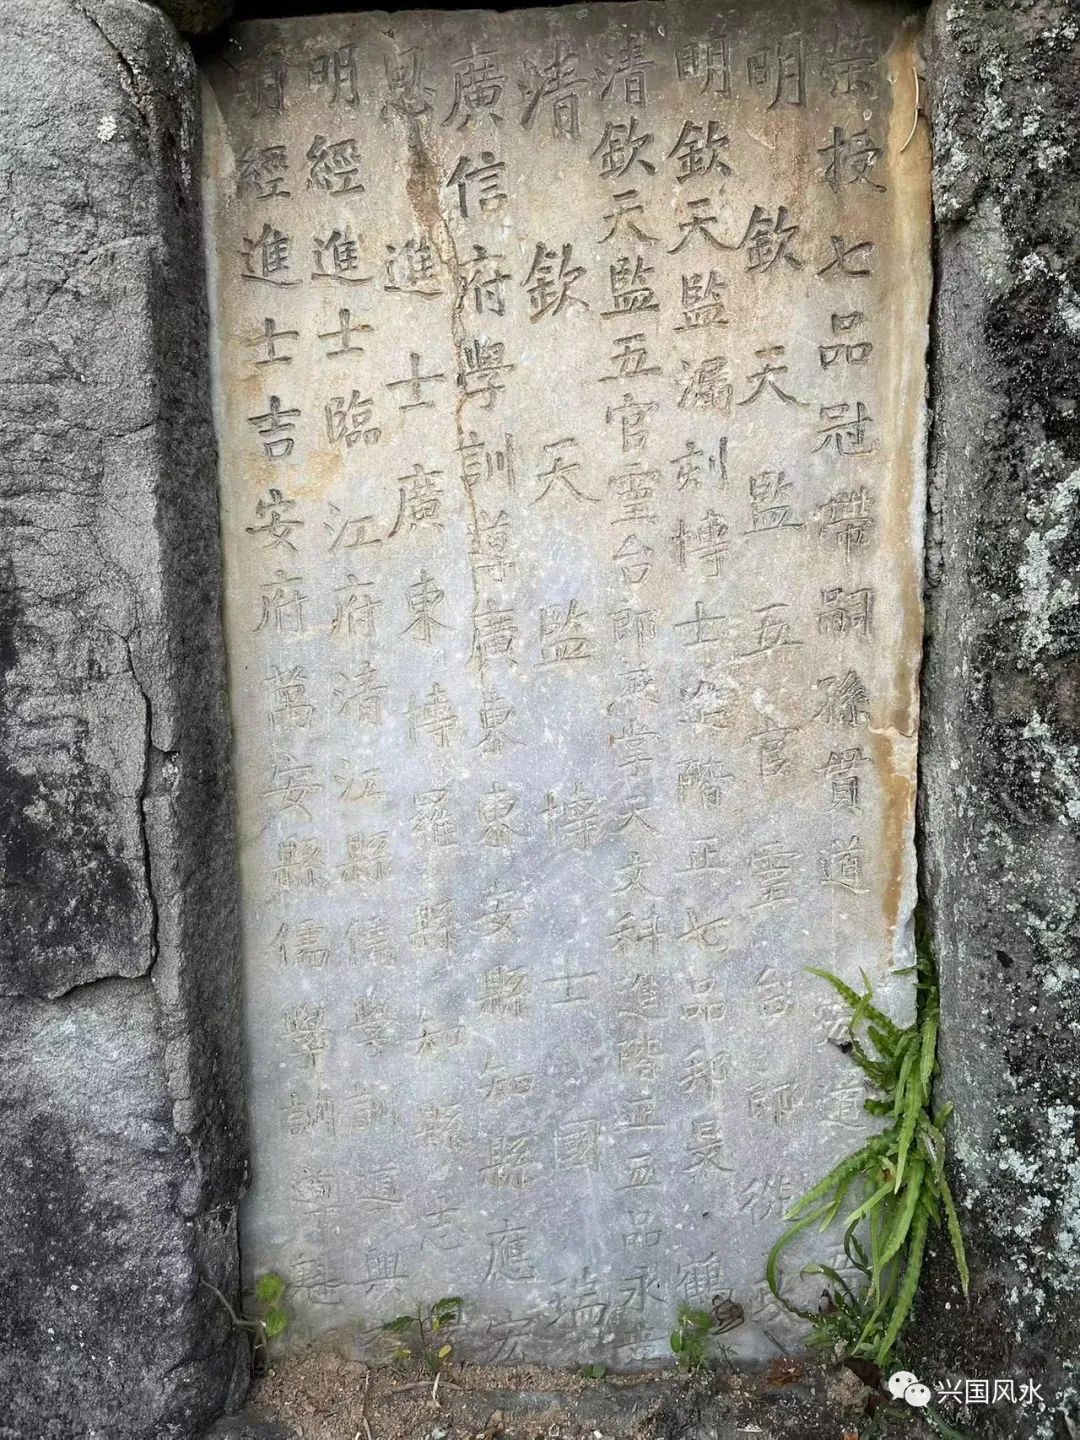 榮授七品冠帶嗣孫貫道 道
明欽天監五官靈台郎從政
明欽天監漏刻博士進階正七品邦旻 鶴
清欽天監五官靈台郎兼掌天文科進階正五品永
清欽天監博士國瑞
廣信府學訓導廣東東安縣知縣應宏
恩進士廣東博羅縣知縣志
明經進士臨江府清江縣儒學訓道興
明經進士吉安府萬安縣儒學訓導
兴国风水